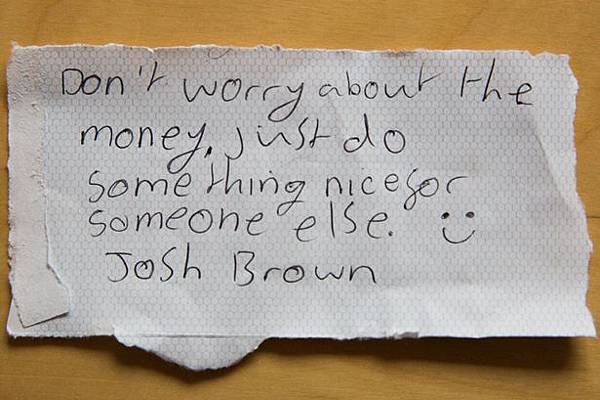 Don't worry about the
money, just do
something nice for
someone else. :)
Josh Brown